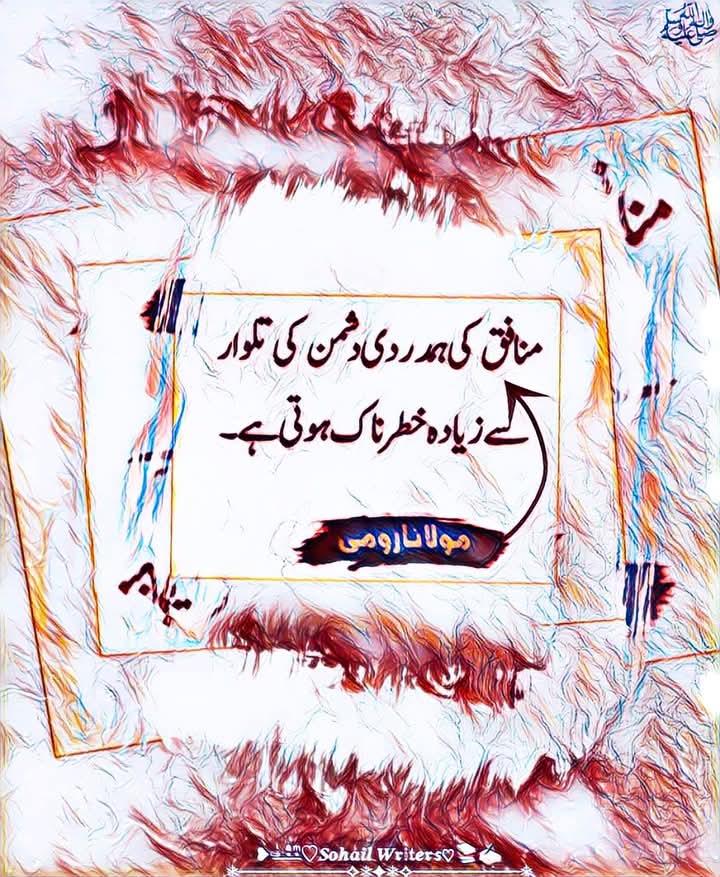 منافق کی ہمدردی دشمن کی تلوار
سے زیادہ خطرناک ہوتی ہے۔
مولانا رومی
Sohail Writers